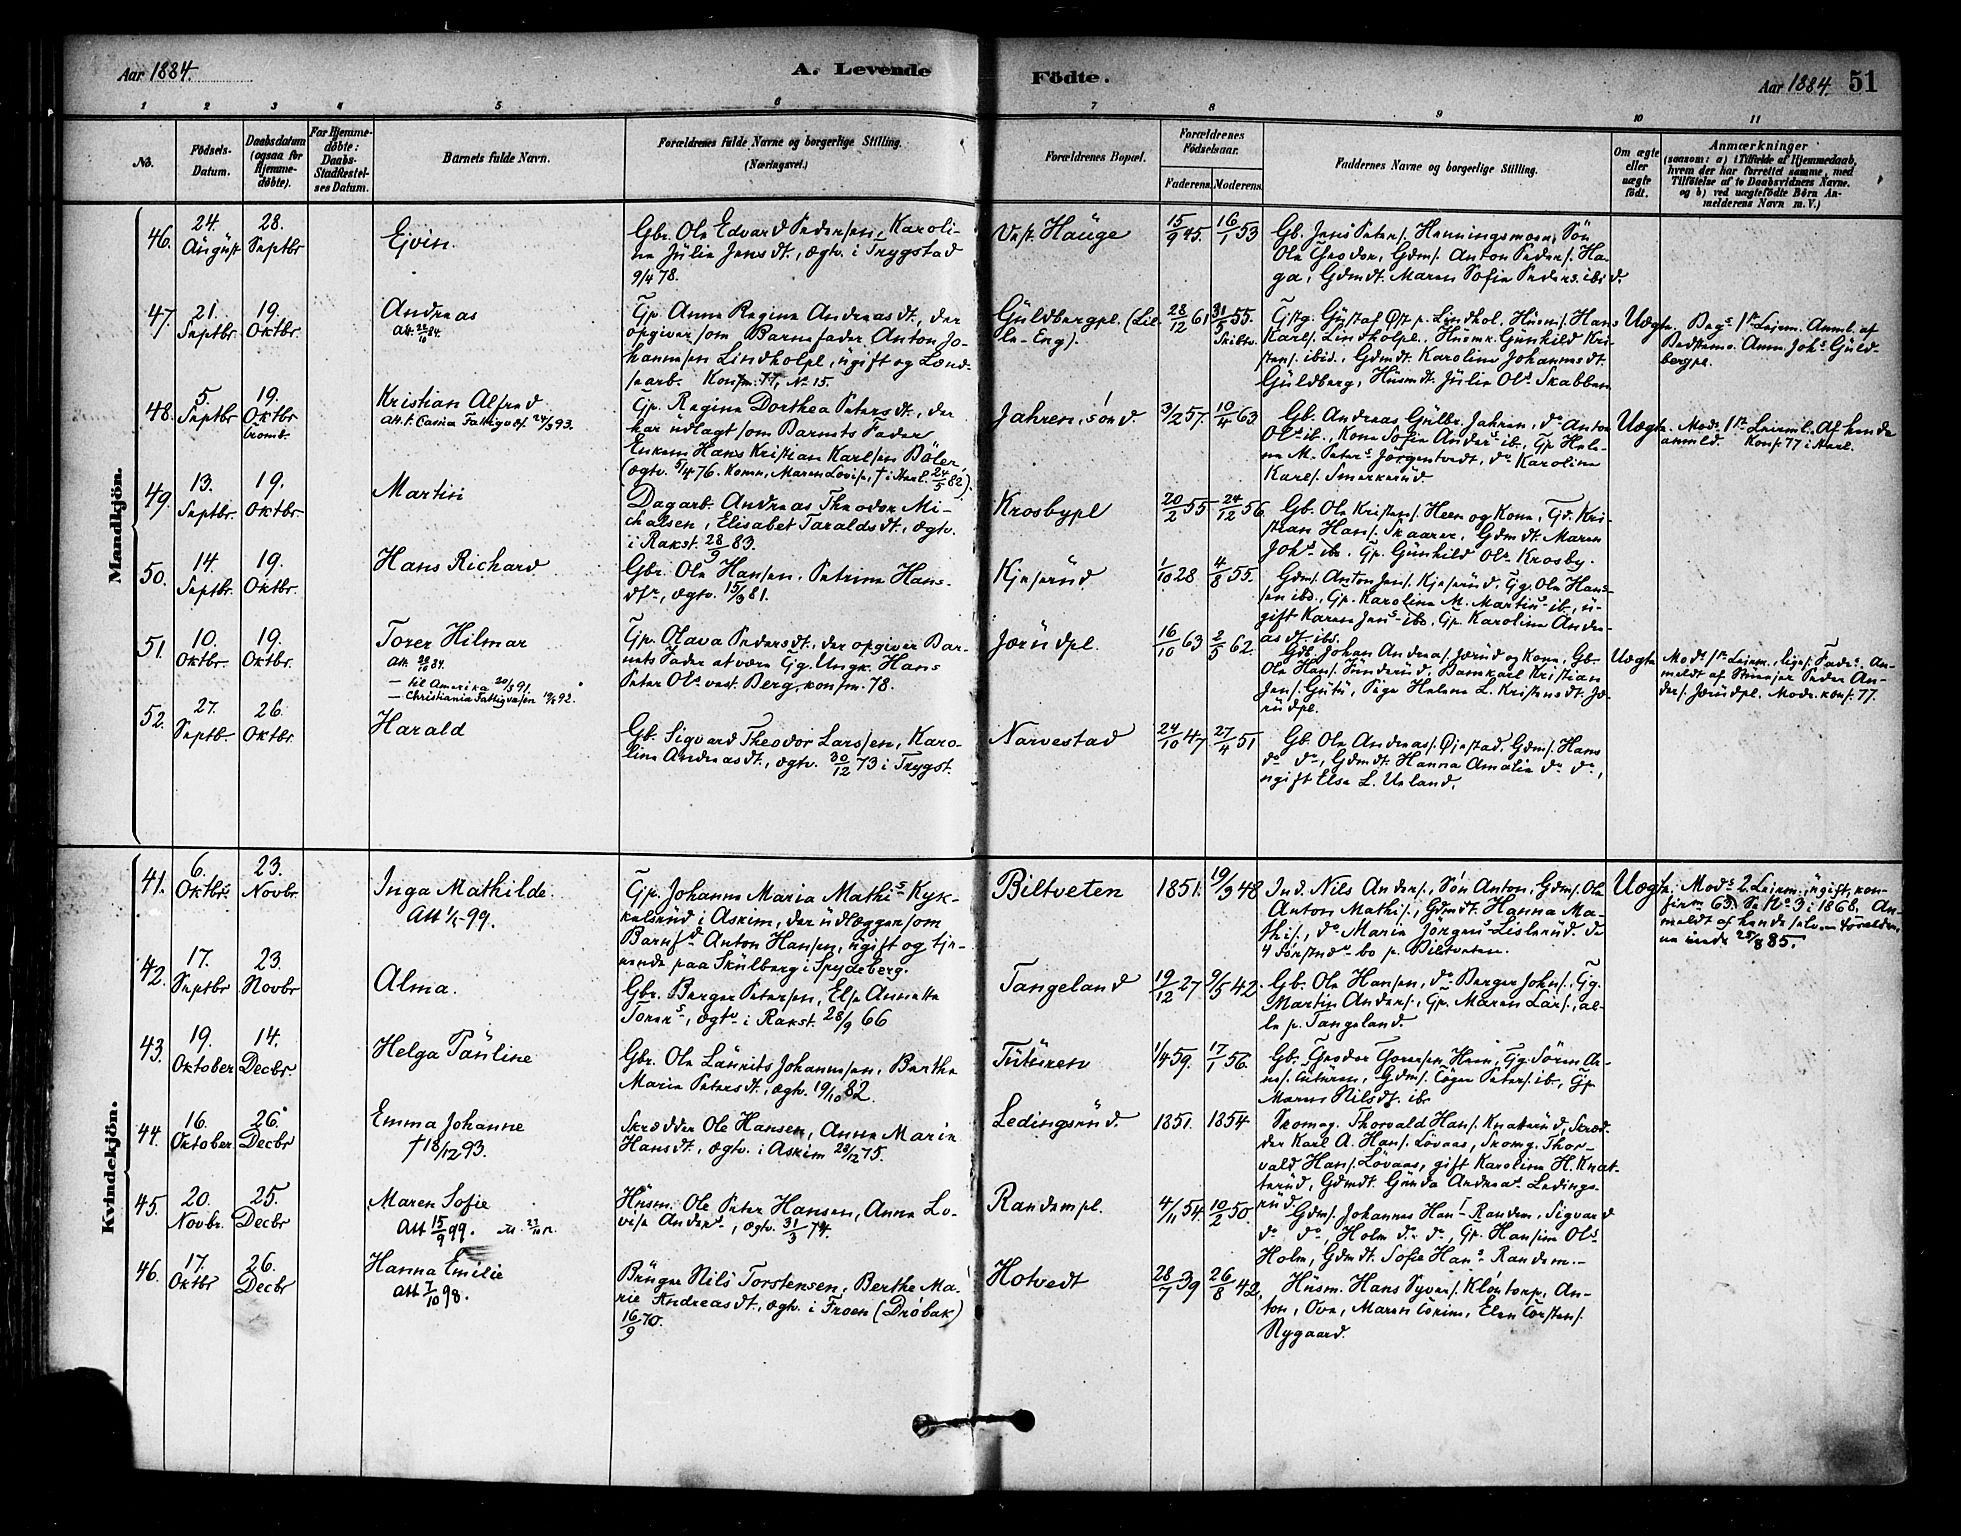 Aar 1884.
A. Levende
Födte.
Aar 1884. 51
1 2 3 4 5 6 7 8 9 10 11
No.
Födsels-
Datum.
Daabsdatum
(ogsaa for
Hjemme-
döbte).
For Hjemme-
döbte:
Daabs-
Stadfestel-
ses Datum.
Barnets fulde Navn.
Forældrenes fulde Navne og borgerlige Stilling.
(Næringsvei.)
Forældrenes Bopæl.
Forældrenes
Födselsaar.
Faderens. Moderens.
Faddernes Navne og borgerlige Stilling.
Om ægte
eller
uægte
födt.
Anmærkninger
(saasom: a) i Tilfælde af Hjemmedaab,
hvem der har forrettet samme, med
Tilföielse af to Daabsvidners Navne.
og b) ved uægtefödte Börn An-
melderens Navn m. V.)
Mandkjön.
46.
24.
August
28.
Septbr
Ejvin.
Gbr. Ole Edvard Pedersen, Karoli-
ne Julie Jensdt., ægtv. i Trygstad
9/4 78.
Vest. Hauge
15/9 45.
16/1 53
Gb. Jens Peters. Henningsmoen, Søn
Ole Theodor, Gdms. Anton Peders. Ha-
ga, Gdmdt. Maren Sofie Peders. ibid.
47.
21.
Septbr.
19.
Oktbr.
Andreas
Att. 22/10 84.
Gp. Anne Regine Andreasdt., der
opgiver som Barnefader Anton Jo-
hannesen Lindholpl., ugift og Land-
searb. Konfm. 77, No 15.
Guldbergpl. (Lil-
le-Eng).
28/12 61
31/5 55.
Gustaf p. Lindhol., Husm. Hans
Karls. Lindholpl., Husmk. Gunhild Kri-
stens. ibid., Gdmdt. Karoline Johannesdt.
Guldberg, Husmdt. Julie Ols. Skabben
Uægte.
Begs 1ste Leierm. Anml. af
Bedstemo. Anne Johs Guld-
bergpl.
48.
5.
Septbr
19.
Oktbr
Kristian Alfred
Gp. Regine Dorthea Petersdt., der
har udlagt som Barnets Fader
Enkem. Hans Kristian Karlsen Böler,
(ægtv. 5/4 76. Kone, Maren Lovise, † i Skarl. 24/5 82).
Jahren, sönd.
3/2 57.
10/4 63
Gb. Andreas Gulbr. Jahren, do Anton
Ols ib., Kone Sofie Anders ib., Gp. Hele-
ne M. Peters Jörgentvedt, do Karoline
Karls. Smerkerud.
Uægte.
Mods 1ste Leierml. Af hende
anmld. Konf. 77 i Skarl.
49.
13.
Septbr.
19.
Oktbr.
Martin
Dagarb. Andreas Theodor Mi-
chalsen, Elisabet Taraldsdt., ægtv.
i Rakst. 28/9 83.
Krosbypl
20/2 55
24/12 56.
Gb. Ole Kristens. Heen og Kone, Gd. Kri-
stian Hans. Skaarer, Gdmdt. Maren
Johs ibs. Gp. Gunhild Ols Krosby.
50.
14.
Septbr.
19.
Oktbr.
Hans Richard
Gbr. Ole Hansen, Petrine Hans-
dtr, ægtv. 15/3 81.
Kjeserud
1/10 28
4/8 55.
Gdms. Anton Jens. Kjeserud, Gg. Ole Hans-
sen ibd., Gp. Karoline M. Martins ib., u-
gift Karen Jens ibs. Gp. Karoline Andre-
asdt. ibs.
51.
10.
Oktbr.
19.
Oktbr.
Torer Hilmar
— til Amerika 20/3 91.
— Christiania Fattigvæsen 19/5 92.
Gp. Olava Pedersdt., der opgiver Bar-
nets Fader at være Gg. Ungk. Hans
Peter Ols vest. Berg, konfm. 78.
Jærudpl.
16/10 63
2/5 62.
Gdb. Johan Andreas Jærud og Kone, Gb.
Ole Hans. Funderud, Barnkarl Kristian
Jens. Gutu, Pige Helene L. Kristensdt. Jæ-
rudpl.
Uægte
Mods 1ste Leierm., liges. Fads. An-
meldt af Steniejer Peder An-
ders. Jærudpl. Mods konf. 77.
52.
27.
Septb.
26.
Oktbr.
Harald
Gb. Sigvard Theodor Larssen, Karo-
line Andreasdt., ægtv. 30/12 73 i Trygst.
Narvestad
24/10 47
27/4 51
Gb. Ole Andreas. Öiestad, Gdms. Hans
do do, Gdmdt. Hanna Amalia do do,
ugift Else L. Ueland.
Kvindekjön.
41.
6.
Oktbr
23.
Novbr.
Inga Mathilde.
Att 1/5 99.
Gp. Johanne Maria Mathis Kyk-
kelsrud i Askim, der udlægger som
Barnfd Anton Hansen, ugift og tje-
nende paa Skulberg i Spydeberg.
Biltveten
1851.
19/9 48
Ind. Nils Anders., Søn Anton, Gdms. Ole
Anton Mathis., Gdmdt. Hanna Ma-
this., do Maria Jörgens Lislerud. De
4 förstnv bo p. Biltveten.
Uægte.
Mods 2. Leierm., ugift, kon-
firm. 63. Se No 3 i 1868. An-
meldt af hende selv. — Foreldre-
ne viede 25/8 85.
42.
17.
Septbr
23.
Novbr
Alma.
Gbr. Berger Petersen, Else Annette
Torers, ægtv i Rakst. 28/9 66
Tangeland
19/12 27
9/5 42.
Gb. Ole Hansen, do Berger Johs., Gg.
Martin Anders., Gp. Maren Lars., al-
le p. Tangeland.
43.
19.
Oktober
14.
Decbr
Helga Pauline
Gbr. Ole Laurits Johannesen, Berthe
Marie Petersdt., ægtv. 19/10 82.
Tuturen
1/4 59.
17/1 56.
Gb. Theodor Thoresen Heen, Gg. Sören Ar-
nes. Tuturen, Gdms. Töger Peters. ib., Gp.
Maren Nilsdt. ib.
44.
16.
Oktober.
26.
Decbr
Emma Johanne
† 18/12 93.
Skrædder Ole Hansen, Anne Marie
Hansdt., ægtv. i Askim 28/12 75.
Ledingsrud.
1851.
1854
Skomag. Thorvald Hans. Knatterud, Skræd-
der Karl A. Hans. Lövaas, Skomg. Thor-
vald Hans. Lövaas, gift Karoline H. Knat-
terud, Gdmdt. Gunda Andreas. Ledings-
rud.
45.
20.
Novbr.
25.
Decbr
Maren Sofie
Att 15/9 99.
Husm. Ole Peter Hansen, Anne Lo-
vise Anders., ægtv. 31/3 74.
Randempl.
4/11 54.
10/2 50.
Gdms. Johannes Hans Randem, Sigvard
do do, Holm do do, Gp. Hansine Ols
Holm, Gdmdt. Sofie Hans Randem.—
46.
17.
Oktbr
26.
Decbr
Hanna Emilie
Att 7/10 98.
Bruger Nils Torstensen, Berthe Ma-
rie Andreasdt., ægtv. i Froen (Dröbak)
16/9 70.
Hotvedt
28/7 39
26/8 42.
Husm. Hans Syvers. Klöntorp, An-
ton, Ove, Maren Torine, Elen Torstens.
Nygaard.